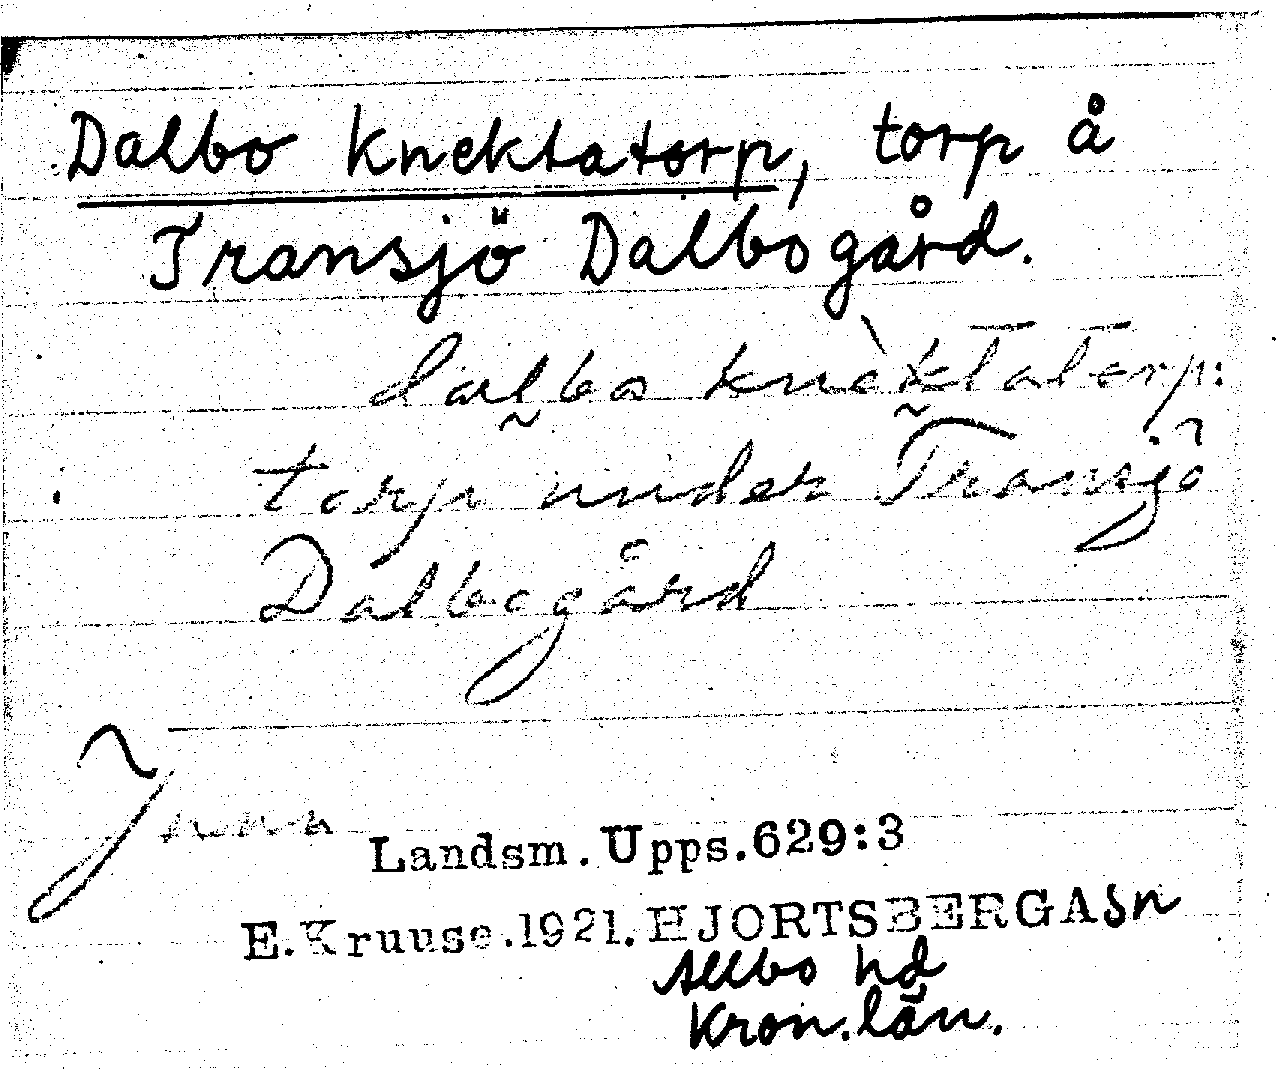 Dalbo Knektatorp, torp å
Transjö Dalbogård.
dalbo knèktatorp:
torp under Transjö
Dalbogård
Landsm. Upps. 629:3
E. Kruuse. 1921. HJORTSBERGA sn
Allbo hd
Kron. län.